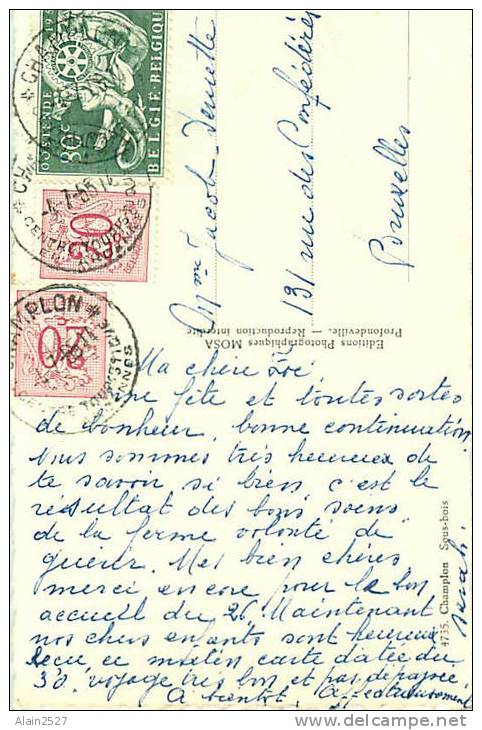 Ma chère Zoé
bonne fête et toutes sortes
de bonheur, bonne continuation.
Nous sommes très heureux de
te savoir si bien c'est le
résultat des bons soins
de la ferme volonté de
guérir. Mes bien chères
merci encore pour le bon
accueil du 26. Maintenant
nos chers enfants sont heureux
Reçu ce matin carte datée du
30, voyage très bon et pas
A bientôt, Affectueusement
Mme Jacob-
131 rue des Confédérés
Bruxelles
Editions Photographiques MOSA
Profondeville. — Reproduction interdite
4735. Champlon Sous-bois
OOSTENDE
80c
BELGIE-BELGIQUE
CHAMPLON
-4-7-55
CENTRE TOURISTIQUE
EN ARDENNES
20
CHAMPLON
© Alain2527
http://www.delcampe.net